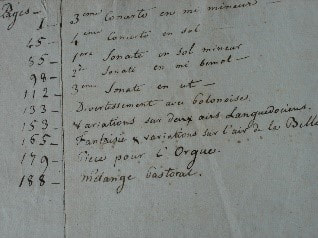 Pages
1 — 3eme Concerto en mi mineur —
45 — 4eme Concerto en sol
85 — 1ere Sonate en sol mineur
98 — 2e Sonate en mi bemol —
112 — 3eme Sonate en ut —
133 — Divertissement avec Polonoises.
153 — Variations sur deux airs Languedociens.
165 — Fantaisie & variations sur l'air de la Belle
179 — Piece pour l'Orgue.
188 — Mélange Pastoral.